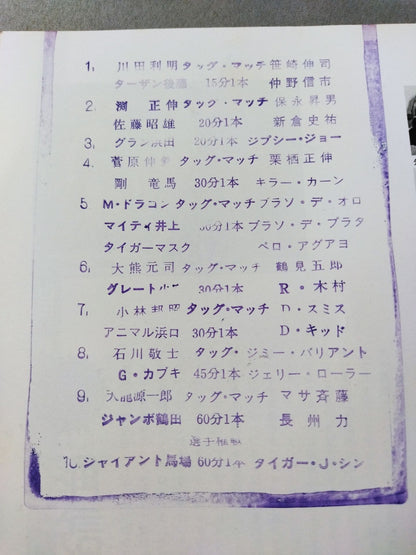 1, 川田利明 タッグ・マッチ 笹崎伸司
ターザン後藤 15分1本 仲野信市
2, 渕 正伸 タッグ・マッチ 保永昇男
佐藤昭雄 20分1本 新倉史祐
3, グラン浜田 20分1本 ジプシー・ジョー
4, 菅原伸義 タッグ・マッチ 栗栖正伸
剛 竜馬 30分1本 キラー・カーン
5 M・ドラコン タッグ・マッチ ブラソ・デ・オロ
マイティ井上 30分1本 ブラソ・デ・プラタ
タイガーマスク ペロ・アグアヨ
6, 大熊元司 タッグ・マッチ 鶴見五郎
グレート小 30分1本 R・木村
7, 小林邦昭 タッグ・マッチ D・スミス
アニマル浜口 30分1本 D・キッド
8, 石川敬士 タッグ・ ジミー・バリアント
G・カブキ 45分1本 ジェリー・ローラー
9, 天龍源一郎 タッグ・マッチ マサ斉藤
ジャンボ鶴田 60分1本 長州 力
選手権
10, ジャイアント馬場 60分1本 タイガー・J・シン